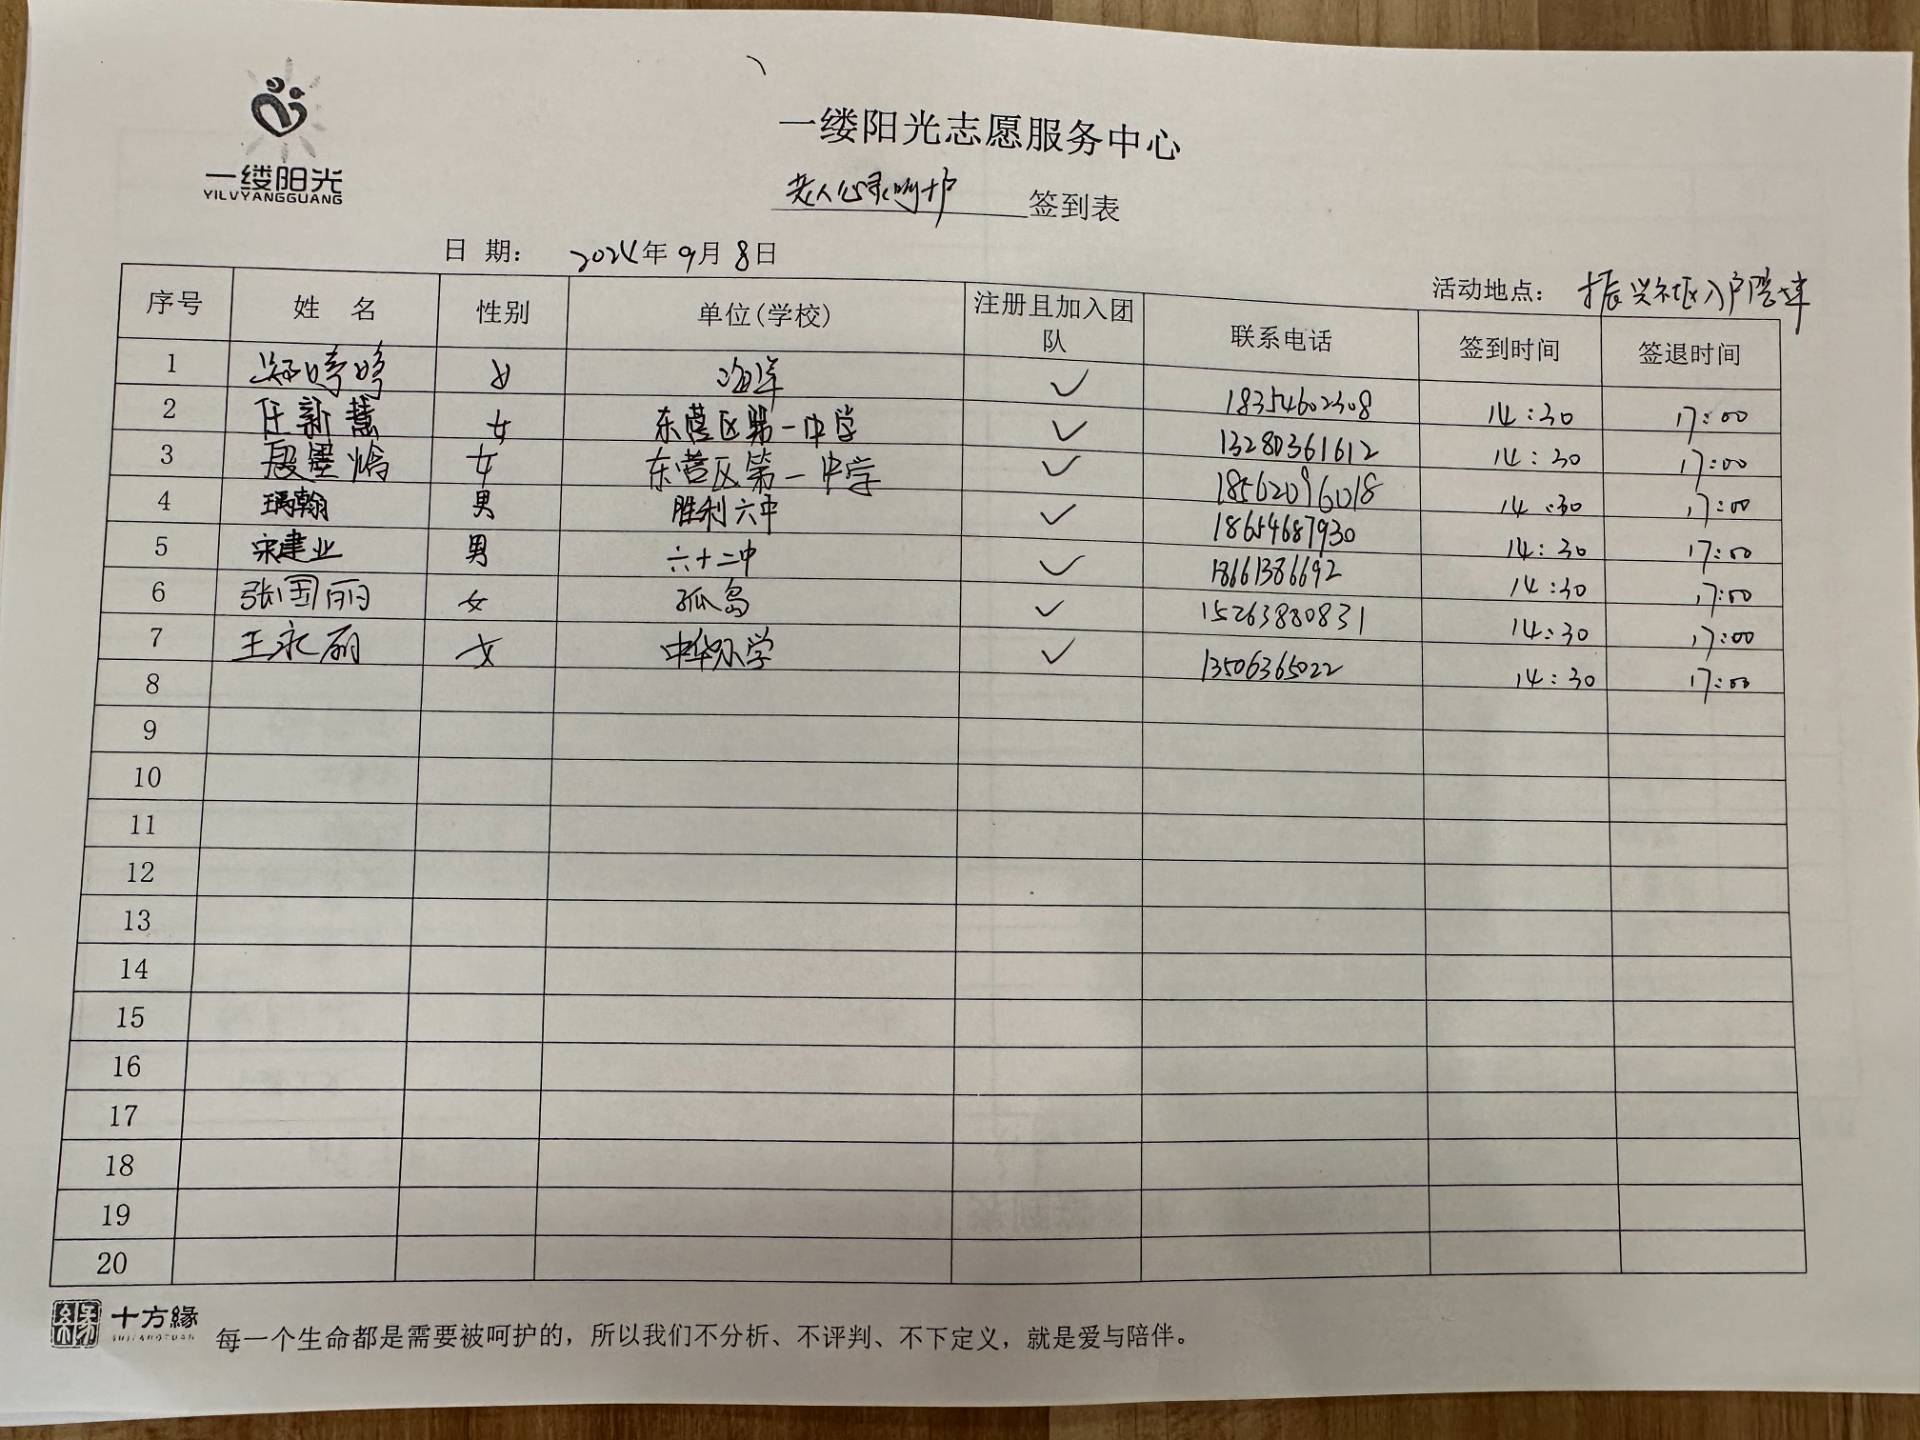 一缕阳光
YILVYANGGUANG
一缕阳光志愿服务中心
老人心灵呵护 签到表
日 期： 2024年9月8日
活动地点： 振兴社区入户陪伴
序号 姓 名 性别 单位(学校) 注册且加入团队 联系电话 签到时间 签退时间
1 婷婷 女 海洋 ✓ 18354602308 14:30 17:00
2 任新慧 女 东营区第一中学 ✓ 13280361612 14:30 17:00
3 殷墨 女 东营区第一中学 ✓ 18562096018 14:30 17:00
4 翰 男 胜利六中 ✓ 18654687930 14:30 17:00
5 宋建业 男 六十二中 ✓ 18661386692 14:30 17:00
6 张国丽 女 孤岛 ✓ 15263880831 14:30 17:00
7 王永丽 女 中华小学 ✓ 13506365022 14:30 17:00
8
9
10
11
12
13
14
15
16
17
18
19
20
缘 十方缘
SHIFANGYUAN
每一个生命都是需要被呵护的，所以我们不分析、不评判、不下定义，就是爱与陪伴。